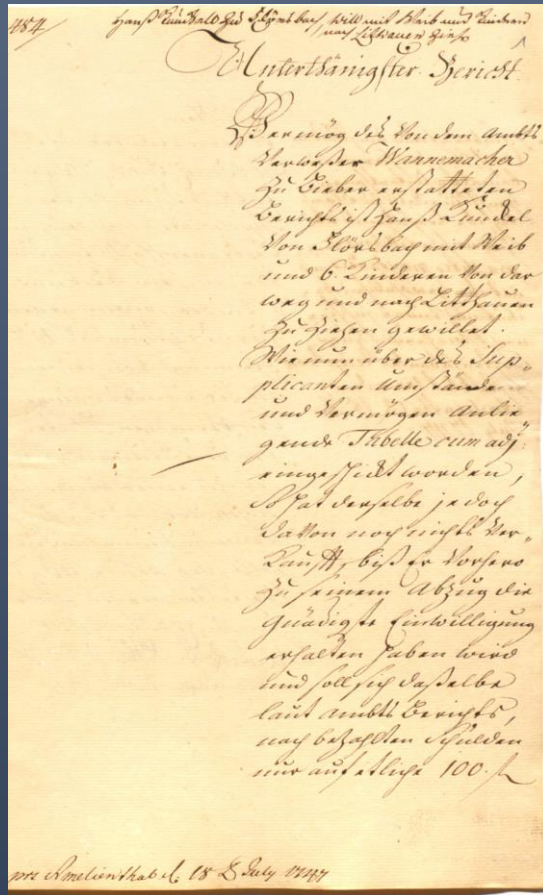 484/
Hanß Kunckell zu Flörsbach, will mit Weib und Kindern
nach Litthauen ziehen
Unterthänigster Bericht.
Vermög des von dem Ambts
Verweßer Wannemacher
zu Bieber erstatteten
Berichts ist Hanß Kunckel
von Flörsbach mit Weib
und 6. Kinderen von dar
weg und nach Litthauen
zu ziehen gewillet.
Wie nun über des Sup-
plicanten Umstände
und Vermögen anlie
gende Tabelle cum adj.
eingeschickt worden,
So hat derselbe jedoch
davon noch nichts ver-
kaufft, biß Er vorhero
zu seinem Abzug die
gnädigste Einwilligung
erhalten haben wird
und soll sich daßelbe
laut Ambts Berichts,
nach bezahlten Schulden
nur auf etliche 100. fl
Amelienthal d. 18 July 1747